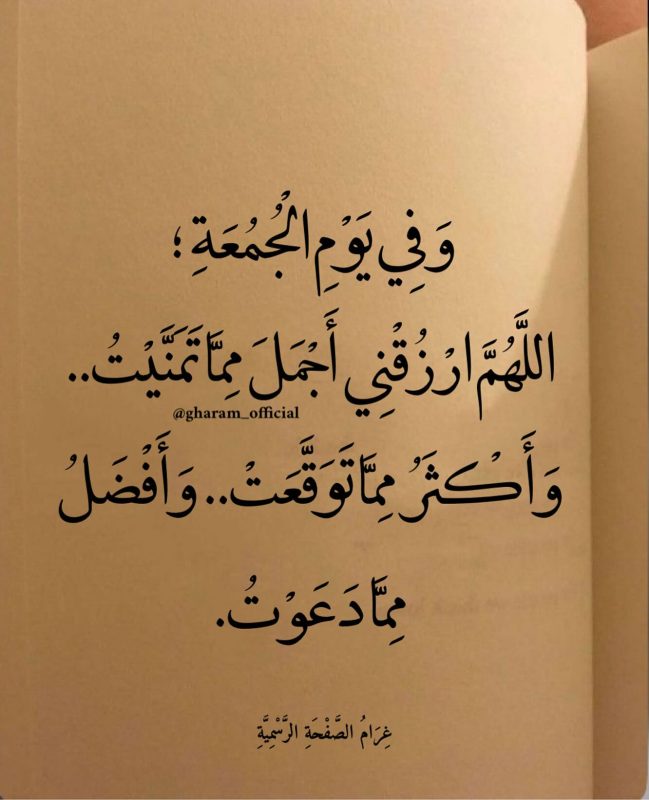 وَفِي يَوْمِ الْجُمُعَةِ ؛
اللَّهُمَّ ارْزُقْنِي أَجْمَلَ مِمَّا تَمَنَّيْتُ..
@gharam_official
وَأَكْثَرُ مِمَّا تَوَقَّعَتْ.. وَأَفْضَلُ
مِمَّا دَعَوْتُ.
غِرَامُ الصَّفْحَةِ الرَّسْمِيَّةِ